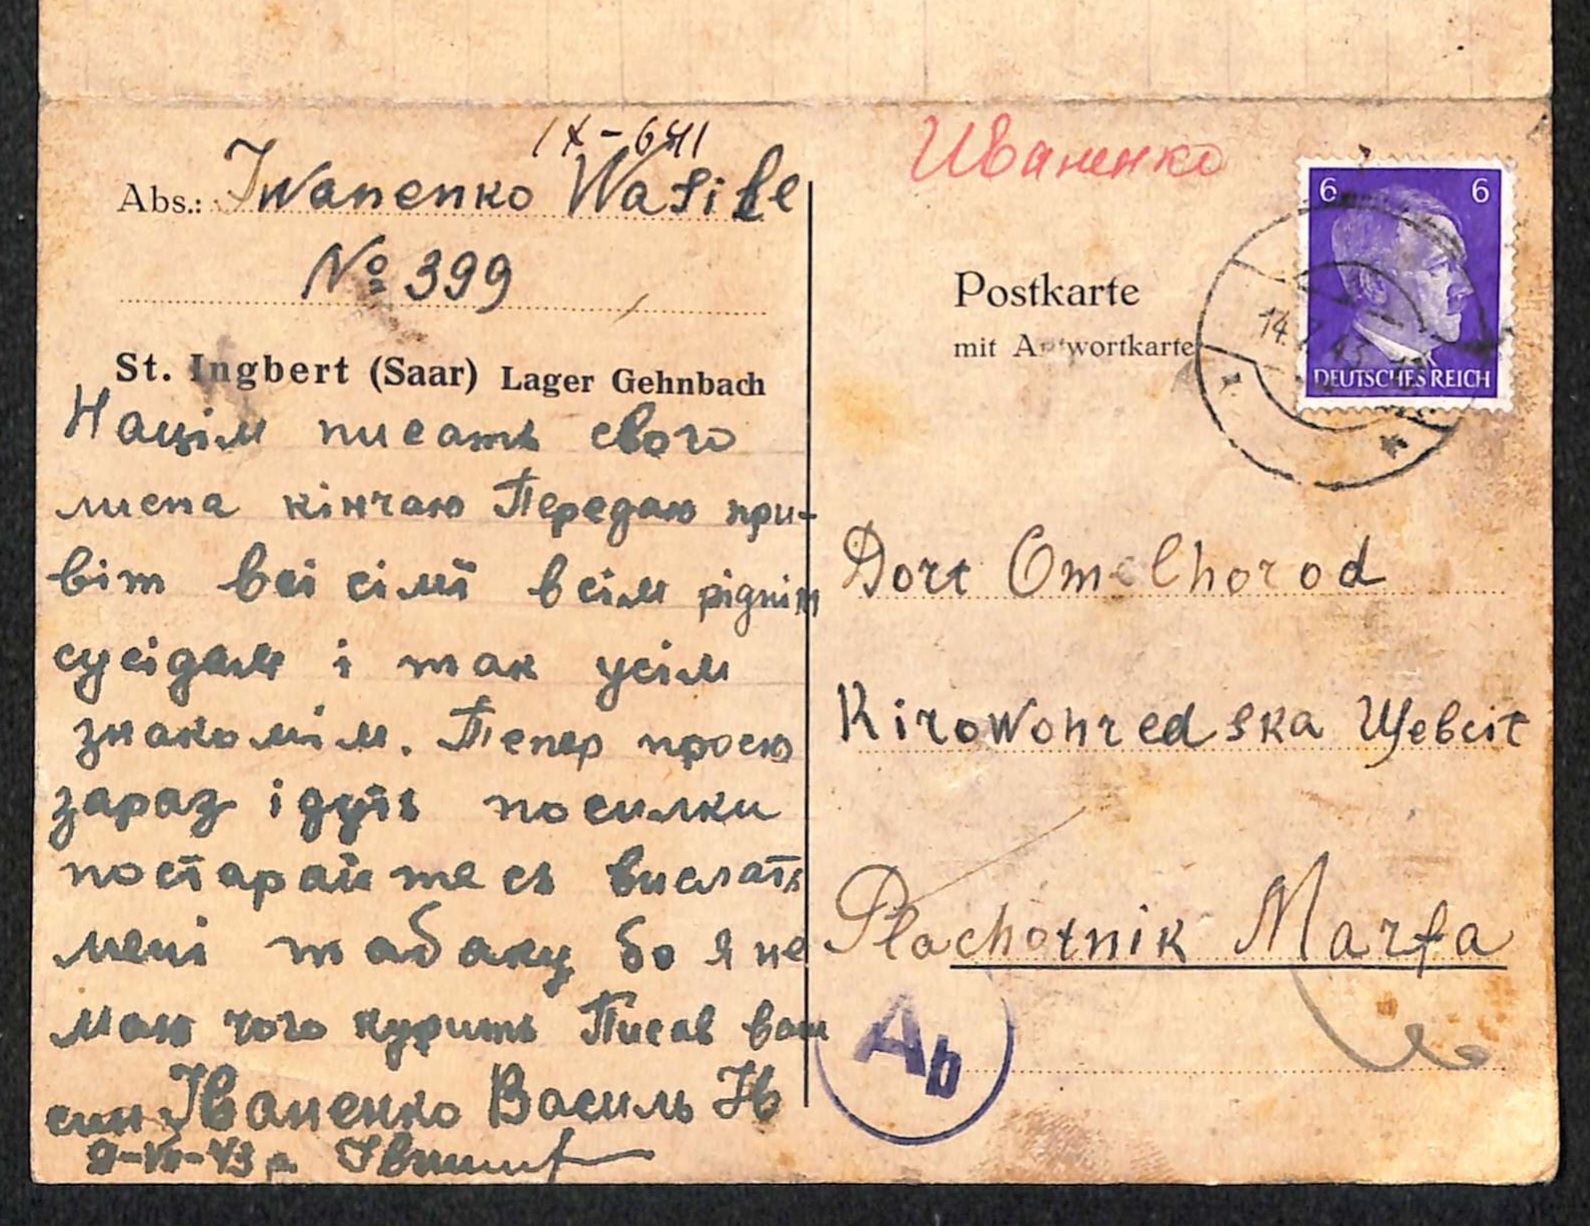 IX-641
Abs.: Iwanenko Wasile
№ 399
St. Ingbert (Saar) Lager Gehnbach
Націм писать свого
листа кінчаю Передаю при-
віт всі сімї всім рідним
сусідам і так усім
знакомім. Тепер просю
зараз ідуть посилки
постарайтесь вислать
мені табаку бо я не
маю чого курить Писав вам
син Іваненко Василь Ів
9-VII-43 р.
Иваненко
6 6
DEUTSCHES REICH
Postkarte
mit Antwortkarte
14. 43
Dort Omelhorod
Kirowohredska
Plachotnik Marfa
Ab